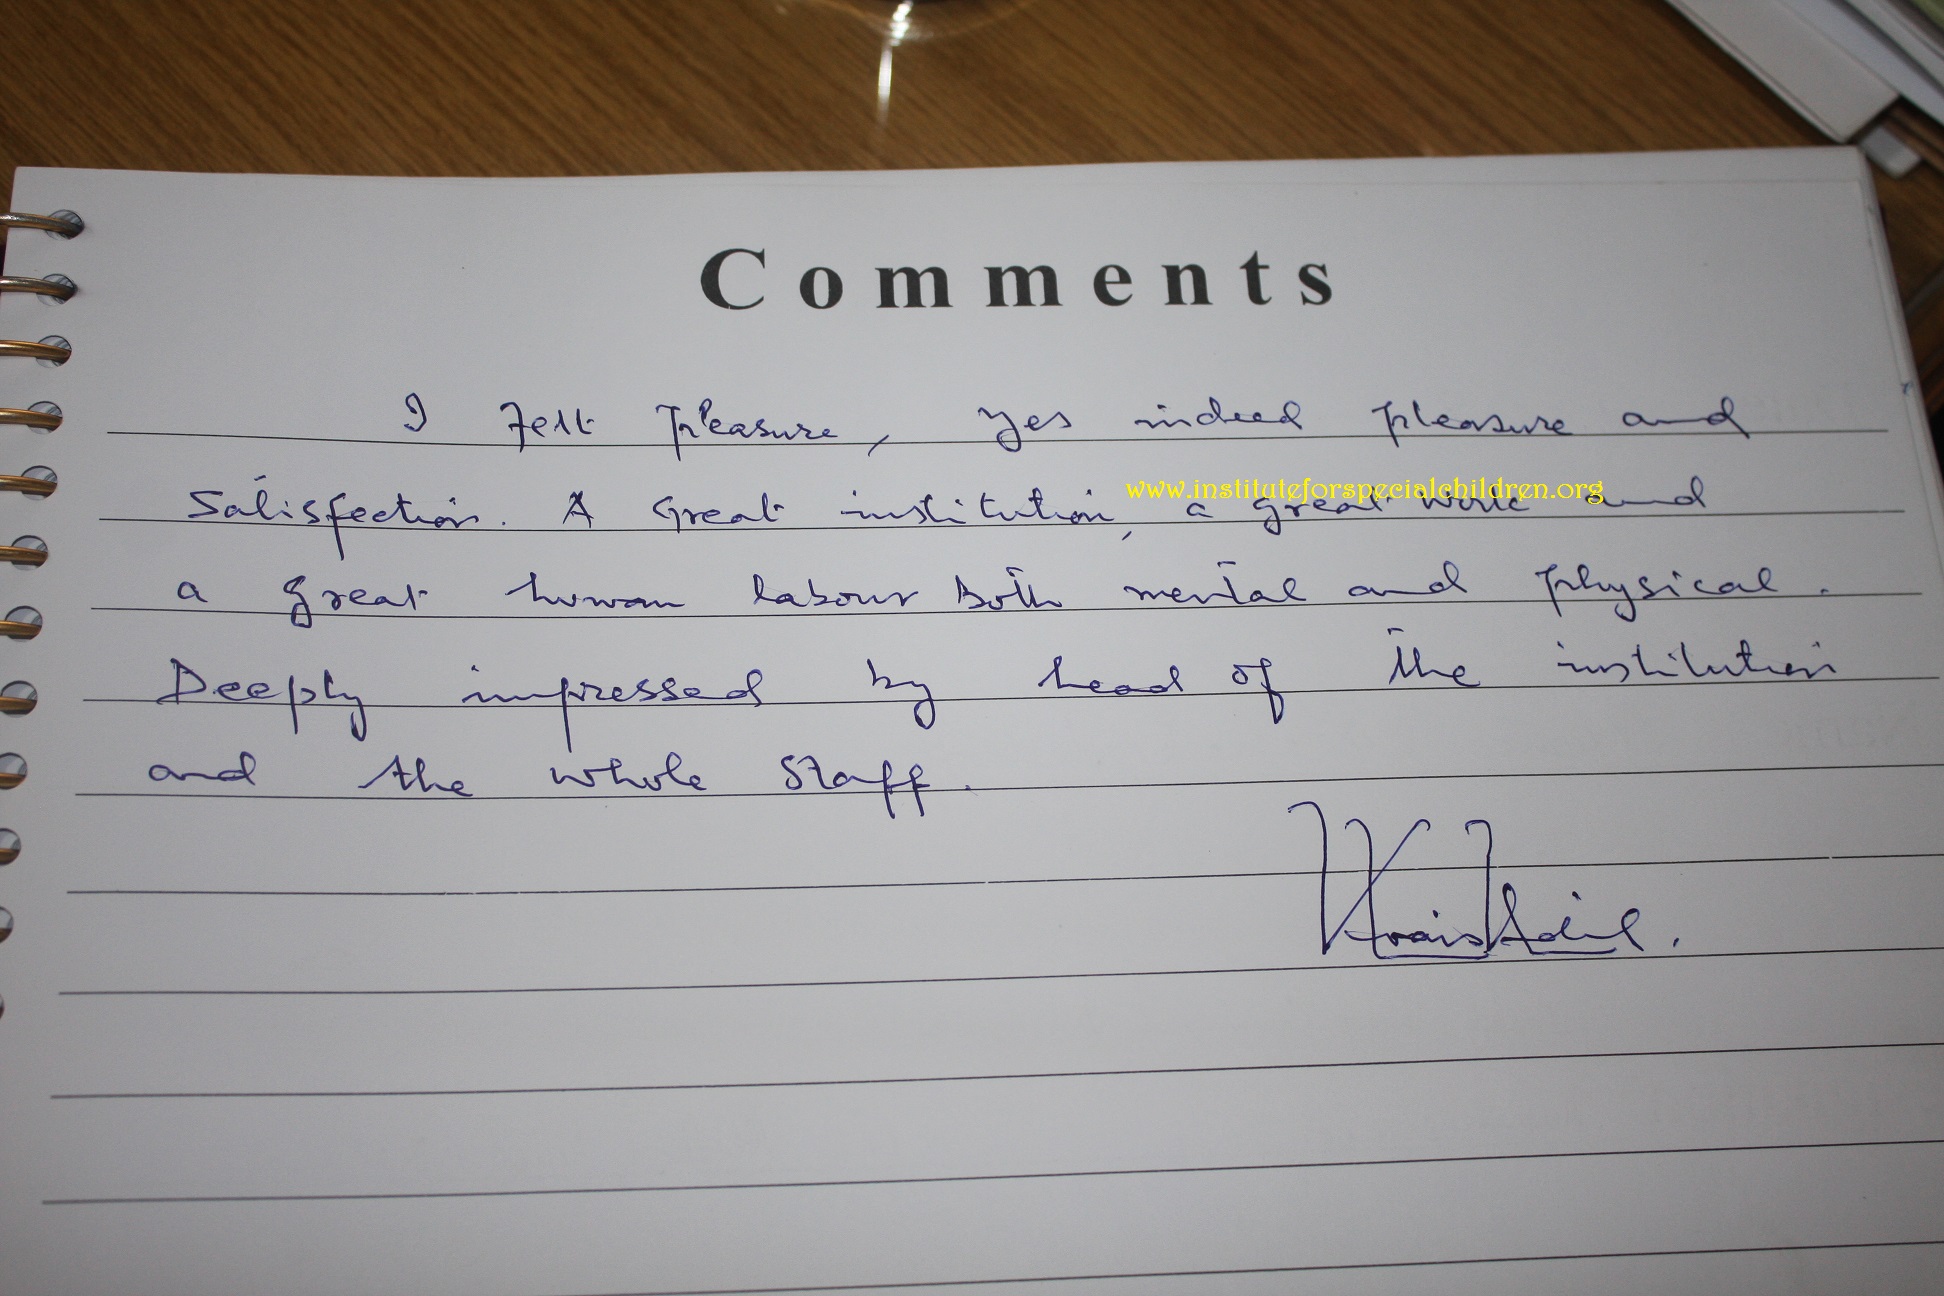 Comments
I felt pleasure, yes indeed pleasure and
Satisfection. A great institution, a great work and
www.instituteforspecialchildren.org
a great human labour both mental and physical.
Deeply impressed by head of the institution
and the whole staff.